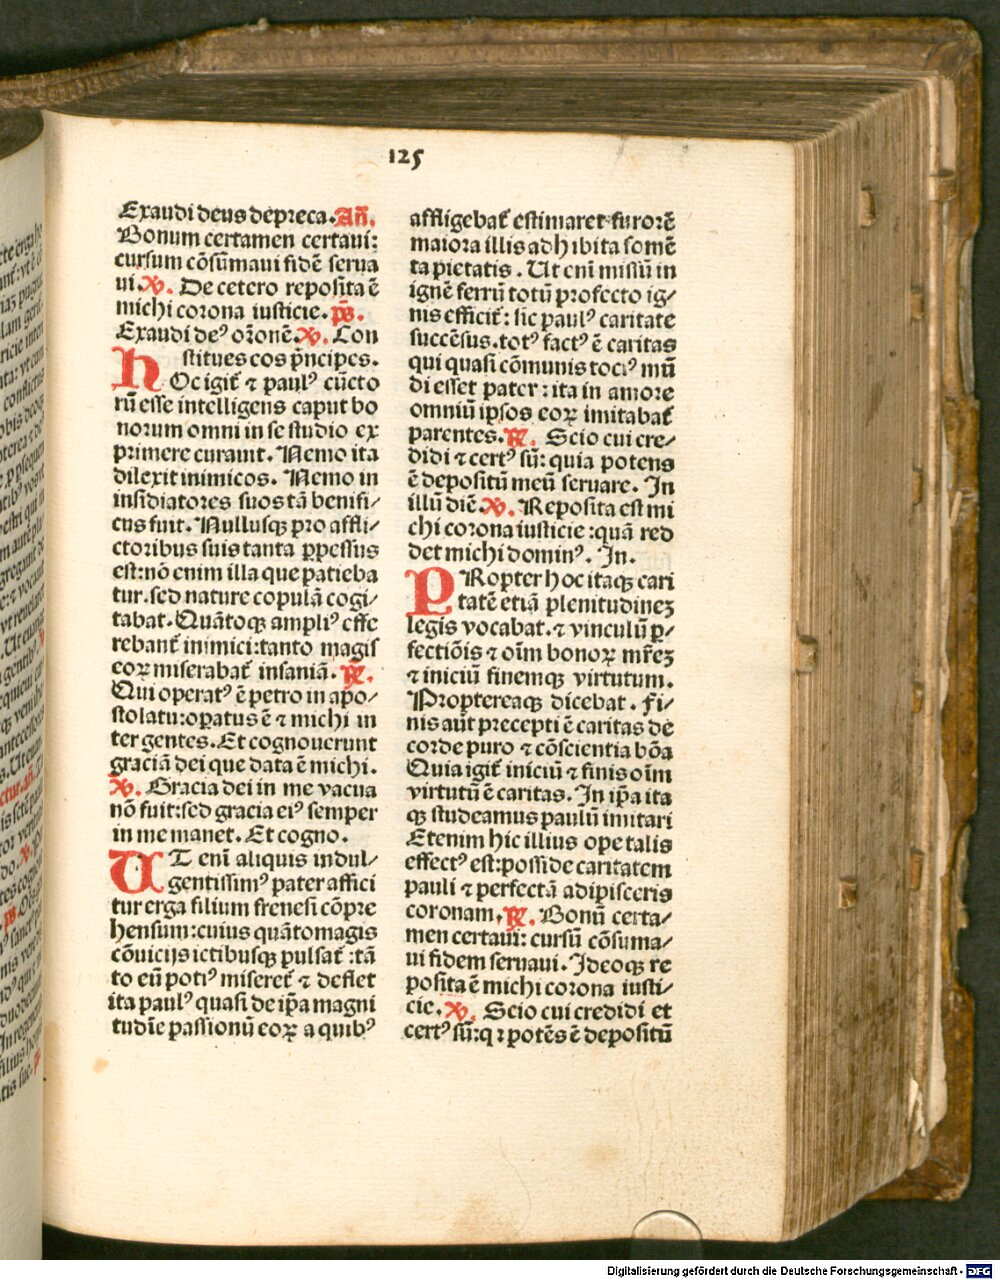 125
Exaudi deus depreca. Añ.
Bonum certamen certaui:
cursum cōsūmaui fidē serua
ui. ℣. De cetero reposita ē
michi corona iusticie. p̄s.
Exaudi deꝰ orōnē. ℣. Con
stitues eos p̄ncipes.
HOc igit̄ ⁊ paulꝰ cūcto
rū esse intelligens caput bo
norum omni in se studio ex
primere curauit. Nemo ita
dilexit inimicos. Nemo in
insidiatores suos tā benifi⸗
cus fuit. Nullusqꝫ pro affli⸗
ctoribus suis tanta ꝑpessus
est: nō enim illa que patieba
tur. sed nature copulā cogi⸗
tabat. Quātoqꝫ ampliꝰ effe
rebant̄ inimici: tanto magis
eoꝝ miserabat̄ insaniā. ℟.
Qui operatꝰ ē petro in apo⸗
stolatu: oꝑatus ē ⁊ michi in
ter gentes. Et cognouerunt
graciā dei que data ē michi.
℣. Gracia dei in me vacua
nō fuit: sed gracia eiꝰ semper
in me manet. Et cogno.
UT enī aliquis indul⸗
gentissimꝰ pater affici
tur erga filium frenesi cōpre
hensum: cuius quāto magis
cōuicijs ictibusqꝫ pulsat̄: tā
to eū potiꝰ miseret̄ ⁊ deflet
ita paulꝰ quasi de ip̄a magni
tudīe passionū eoꝝ a quibꝰ
affligebat̄ estimaret furorē
maiora illis adhibita fomē
ta pietatis. Ut enī missū in
ignē ferrū totū profecto ig⸗
nis efficit̄: sic paulꝰ caritate
succēsus. totꝰ factꝰ ē caritas
qui quasi cōmunis tociꝰ mū
di esset pater: ita in amore
omniū ipsos eoꝝ imitabat̄
parentes. ℟. Scio cui cre⸗
didi ⁊ certꝰ sū: quia potens
ē depositū meū seruare. In
illū diē. ℣. Reposita est mi
chi corona iusticie: quā red
det michi dominꝰ. In.
PRopter hoc itaqꝫ cari
tatē etiā plenitudineꝫ
legis vocabat. ⁊ vinculū ꝑ⸗
fectiōis ⁊ oīm bonoꝝ mr̄eꝫ
⁊ iniciū finemqꝫ virtutum.
Proptereaqꝫ dicebat. Fi⸗
nis aūt precepti ē caritas de
corde puro ⁊ cōscientia bōa
Quia igit̄ iniciū ⁊ finis oīm
virtutū ē caritas. In ip̄a ita
qꝫ studeamus paulū imitari
Etenim hic illius ope talis
effectꝰ est: posside caritatem
pauli ⁊ perfectā adipisceris
coronam. ℟. Bonū certa⸗
men certaui: cursū cōsuma⸗
ui fidem seruaui. Ideoqꝫ re
posita ē michi corona iusti⸗
cie. ℣. Scio cui credidi et
certꝰ sū: qꝛ potēs ē depositū
Digitalisierung gefördert durch die Deutsche Forschungsgemeinschaft - DFG